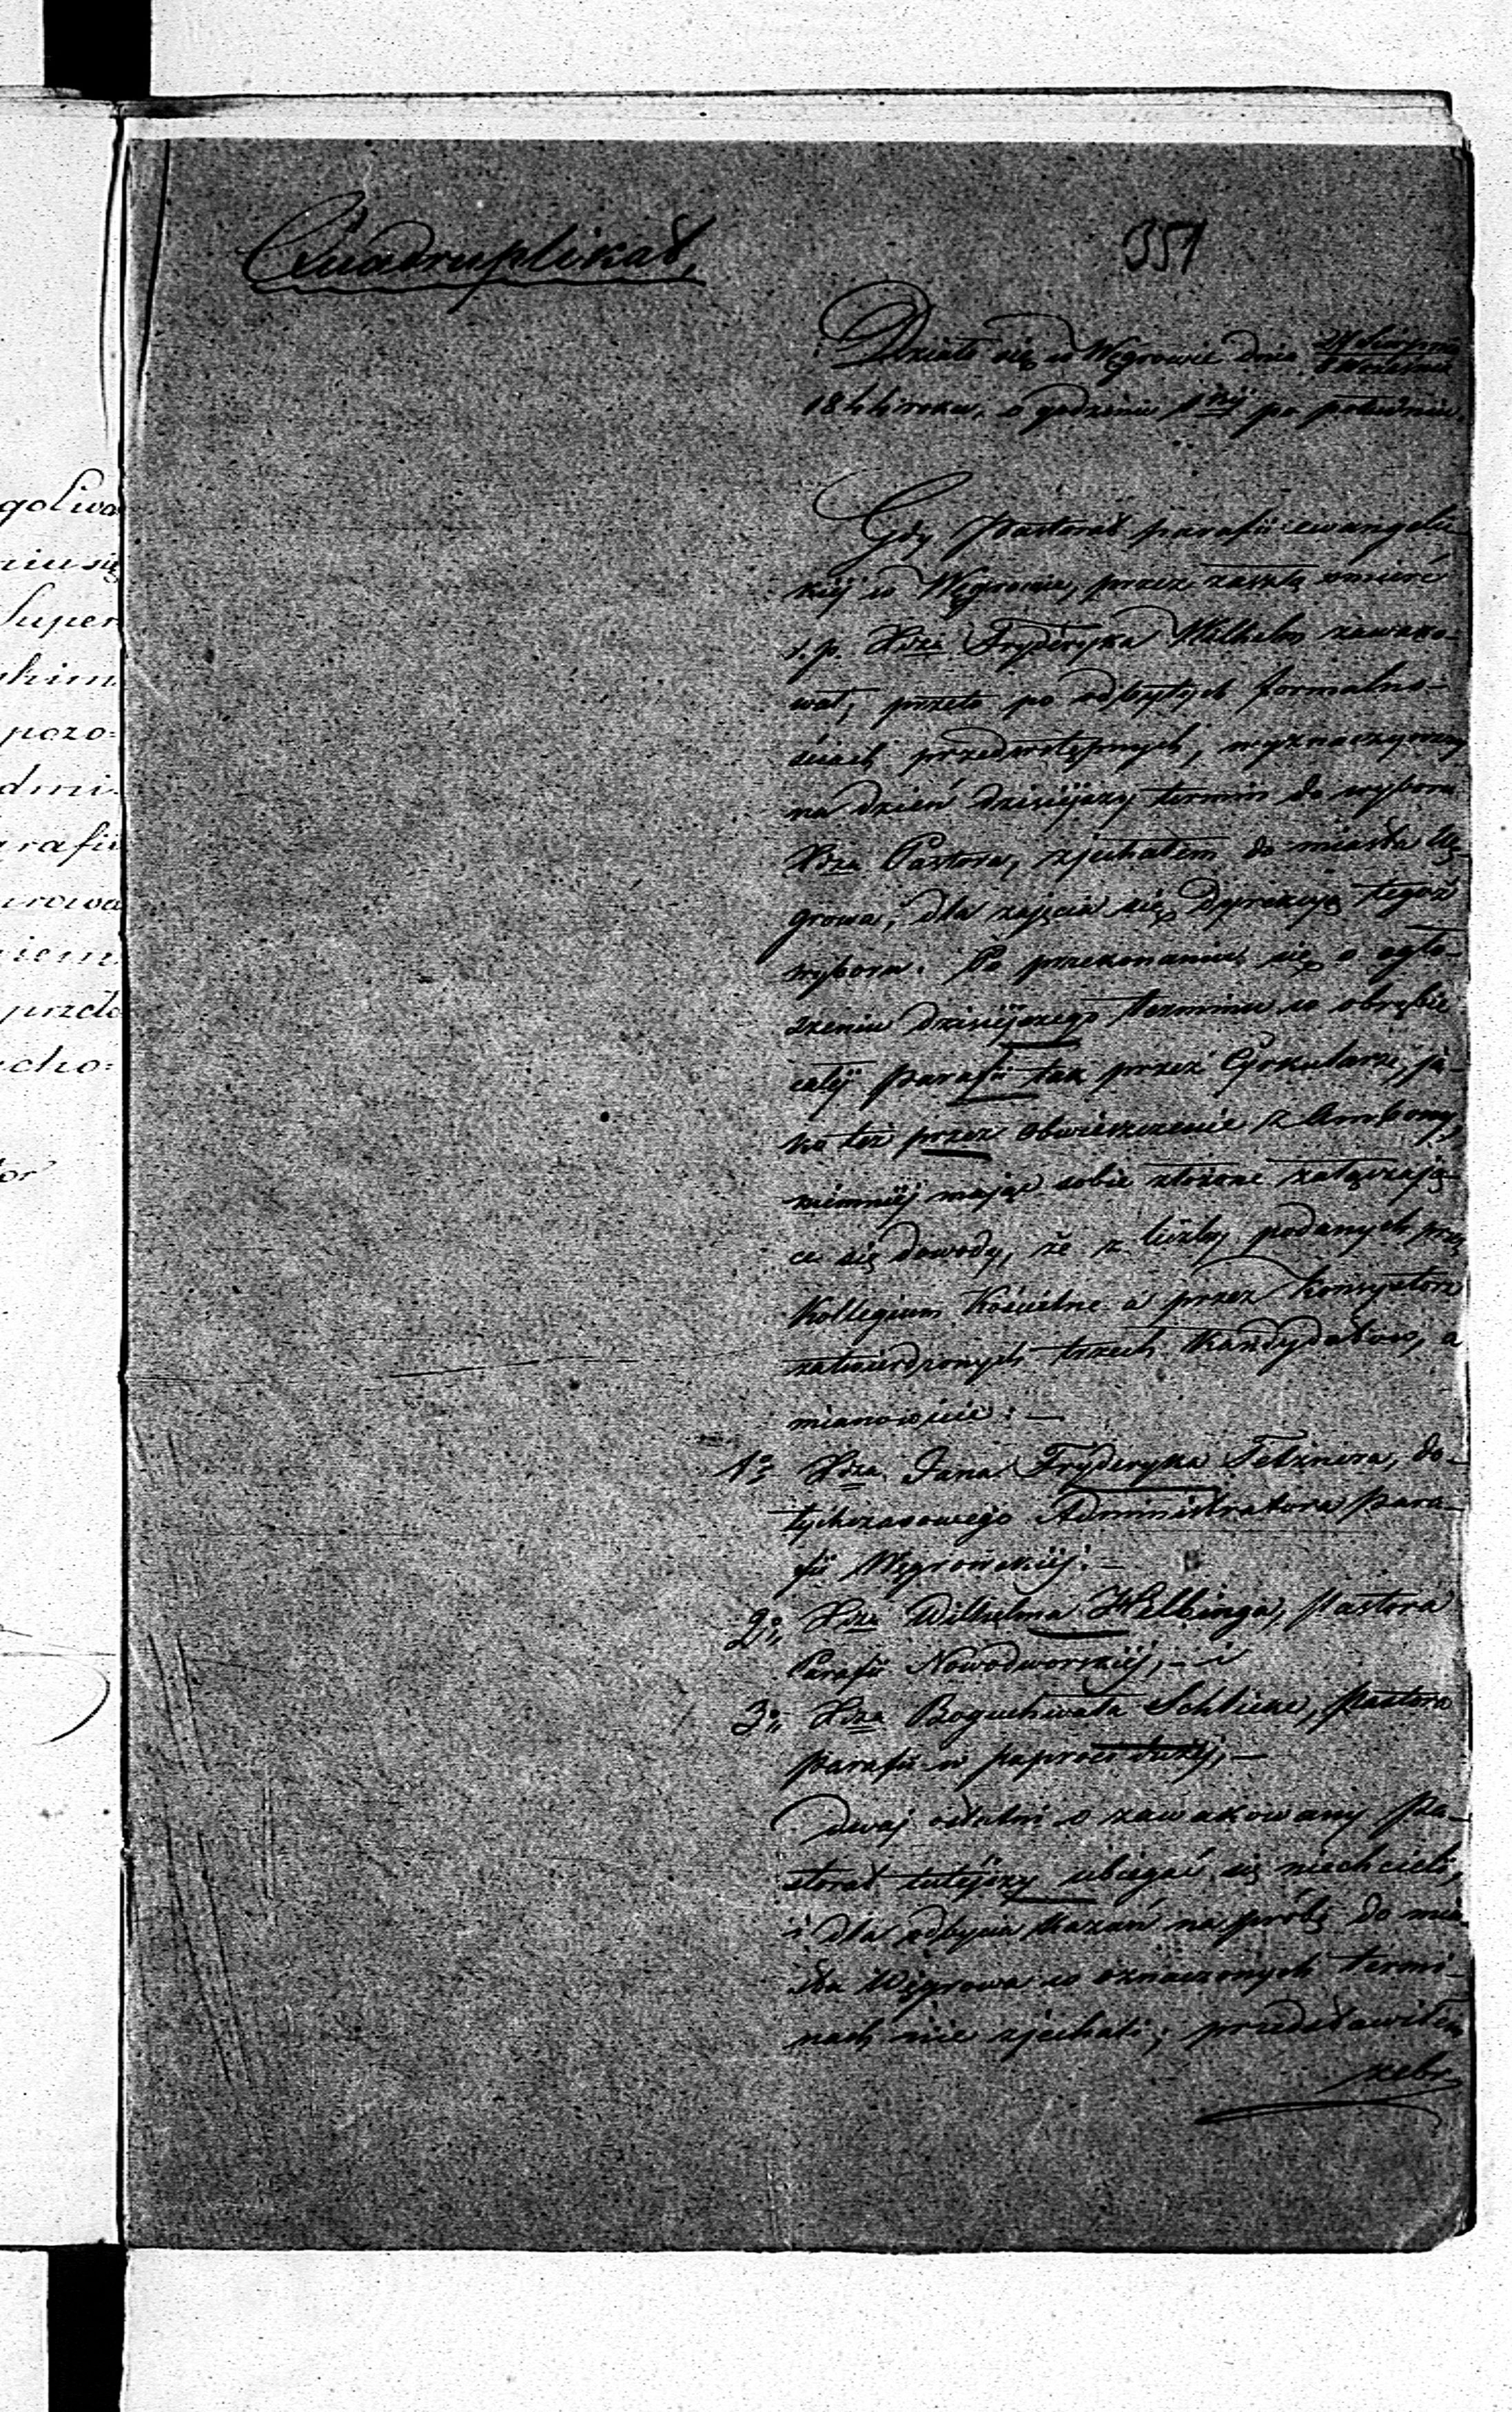 goliwa
niu się
Super
skim
pozo=
dmi.
parafii
urowa
niem
przeto
scho=
tor
Quadruplikat,
351
Działo się w Węgrowie dnia 24 Sierpnia
5 Września
1844 roku, o godzinie 1széj po południu.
Gdy Pastorat parafii ewangelic-
kiéj w Węgrowie, przez zaszłą śmierć
ś. p. Xdza Fryderyka Wilhelm zawako-
wał, przeto po odbytych formalno-
ściach przedwstępnych, wyznaczywszy
na dzień dzisiéjszy termin do wyboru
Xdza Pastora, zjechałem do miasta Wę-
growa, dla zajęcia się Dyrekcyą tegoż
wyboru. Po przekonaniu się o ogło-
szeniu dzisiéjszego terminu w obrębie
całéj parafii tak przez Cyrkularze, ja-
ko też przez obwieszczenie z Ambony,
niemniéj mając sobie złożone załączają-
ce się dowody, że z liczby podanych przez
Kollegium Kościelne a przez Konsystorz
zatwierdzonych trzech Kandydatów, a
mianowicie: —
1o Xdza Jana Fryderyka Tetznera, do-
tychczasowego Administratora para-
fii Węgrowskiéj: —
2o Xdza Wilhelma Helbinga, Pastora
Parafii Nowodworskiéj, – i
3o Xdza Boguchwała Schlicke, Pastora
parafii w paproci dużéj, —
dwaj ostatni o zawakowany Pa-
storat tutéjszy ubiegać się niechcieli,
i dla odbycia kazań na próbę do mia-
sta Węgrowa w oznaczonych termi-
nach nie zjechali; przedstawiłem
zebr